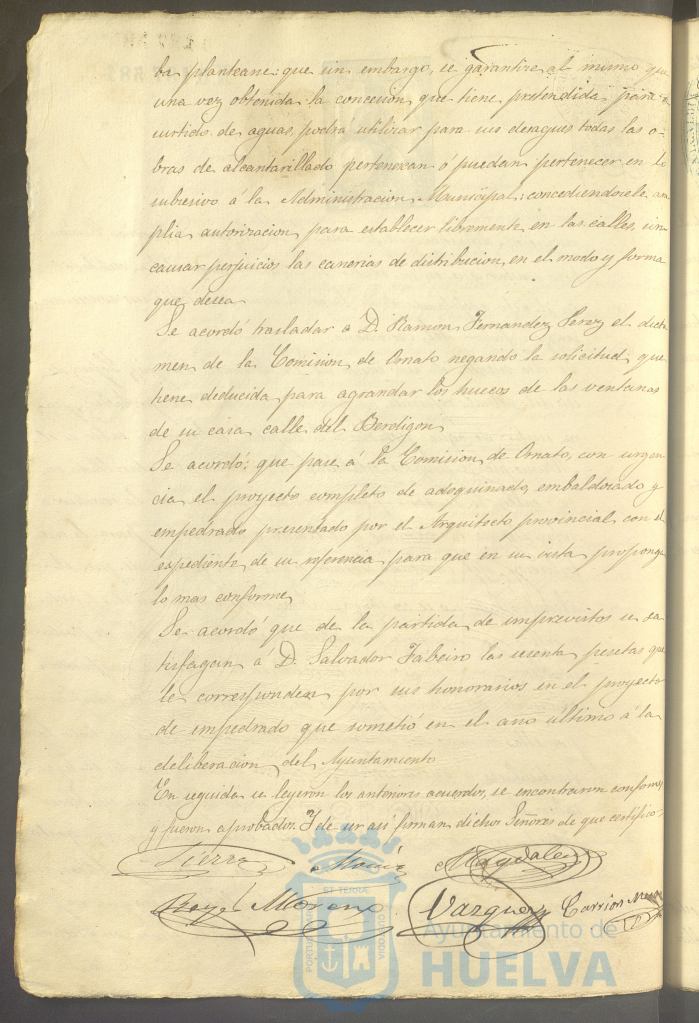 ba planteane: que sin embargo, se garantize al mismo que
una vez obtenida la concesion que tiene pretendida para
surtido de aguas, podrá utilizar para sus desagues todas las o-
bras de alcantarillado pertenezcan ó puedan pertenecer en lo
subcesivo á la Administracion Municipal; concediendosele am
plia autorizacion para establecer libremente en las calles, sin
causar perjuicios las cañerias de distribucion en el modo y forma
que desea.
Se acordó trasladar á D. Ramon Fernandez Perez el dicta
men de la Comision de Ornato negando la solicitud que
tiene deducida para agrandar los huecos de las ventanas
de su casa calle del Berdigon
Se acordó: que pase á la Comision de Ornato, con urgen
cia el proyecto completo de adoquinado, embaldosado y
empedrado presentado por el Arquitecto provincial con el
espediente de su referencia para que en su vista proponga
lo mas conforme
Se acordó que de la partida de imprevistos se sa
tisfagan á D. Salvador Fabeiro las sesenta pesetas que
le corresponden por sus honorarios en el proyecto
de empedrado que sometió en el año último á la
deliberacion del Ayuntamiento
En seguida se leyeron los anteriores acuerdos, se encontraron conformes
y fueron aprobados. Y de ser asi firman dichos Señores de que certifico
Sierra Magdalena
Moreno Vazquez Carrion
ET TERRÆ
PORTUS CUSTODIA
Ayuntamiento de
HUELVA